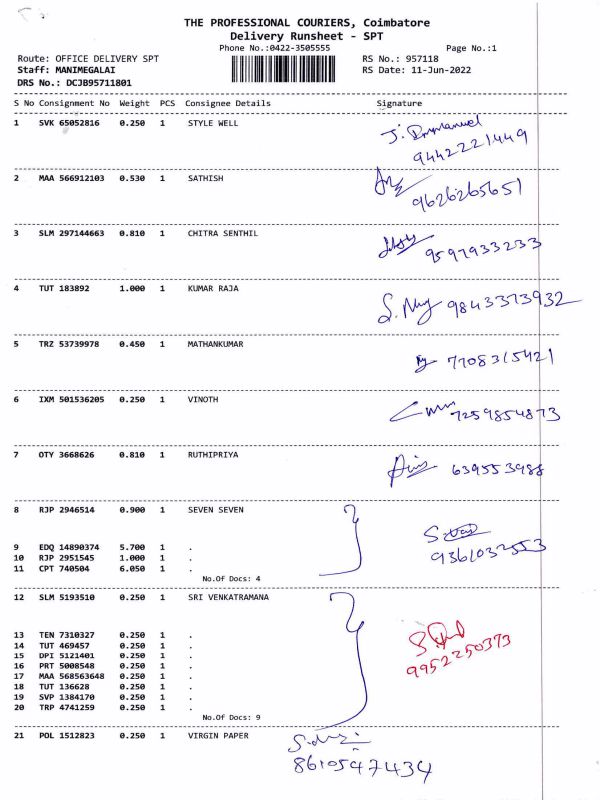 THE PROFESSIONAL COURIERS, Coimbatore
Delivery Runsheet - SPT
Phone No.:0422-3505555 Page No.:1
Route: OFFICE DELIVERY SPT RS No.: 957118
Staff: MANIMEGALAI RS Date: 11-Jun-2022
DRS No.: DCJB95711801
S No Consignment No Weight PCS Consignee Details Signature
1 SVK 65052816 0.250 1 STYLE WELL J. Emmanuel
9442221449
2 MAA 566912103 0.530 1 SATHISH
9626265651
3 SLM 297144663 0.810 1 CHITRA SENTHIL
9597933233
4 TUT 183892 1.000 1 KUMAR RAJA 9843373932
5 TRZ 53739978 0.450 1 MATHANKUMAR 7708315421
6 IXM 501536205 0.250 1 VINOTH 7259854873
7 OTY 3668626 0.810 1 RUTHIPRIYA 639553988
8 RJP 2946514 0.900 1 SEVEN SEVEN
9 EDQ 14890374 5.700 1 . 9361032553
10 RJP 2951545 1.000 1 .
11 CPT 740504 6.050 1 .
No.Of Docs: 4
12 SLM 5193510 0.250 1 SRI VENKATRAMANA
13 TEN 7310327 0.250 1 .
14 TUT 469457 0.250 1 . 9952250373
15 DPI 5121401 0.250 1 .
16 PRT 5008548 0.250 1 .
17 MAA 568563648 0.250 1 .
18 TUT 136628 0.250 1 .
19 SVP 1384170 0.250 1 .
20 TRP 4741259 0.250 1 .
No.Of Docs: 9
21 POL 1512823 0.250 1 VIRGIN PAPER
8610547434